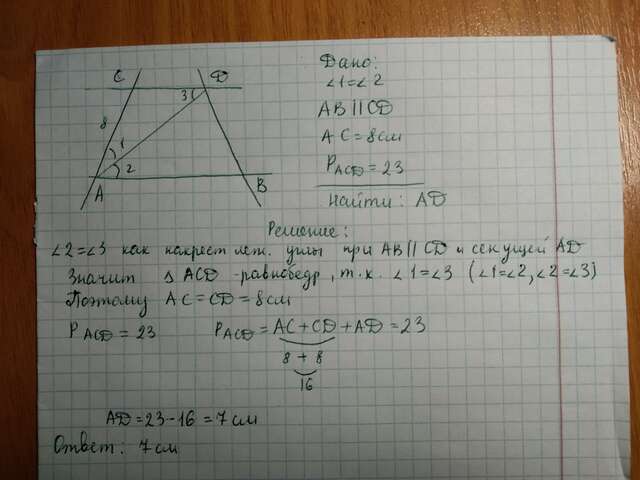 C D
3
8
1
2
A B
Дано:
∠1=∠2
AB||CD
AC=8см
P ACD = 23
Найти: AD
Решение:
∠2=∠3 как накрест леж. углы при AB||CD и секущей AD
Значит Δ ACD -равнобедр, т.к. ∠1=∠3 (∠1=∠2, ∠2=∠3)
Поэтому AC=CD=8см
P ACD = 23 P ACD = AC+CD+AD=23
8 + 8
16
AD=23-16=7см
Ответ: 7см